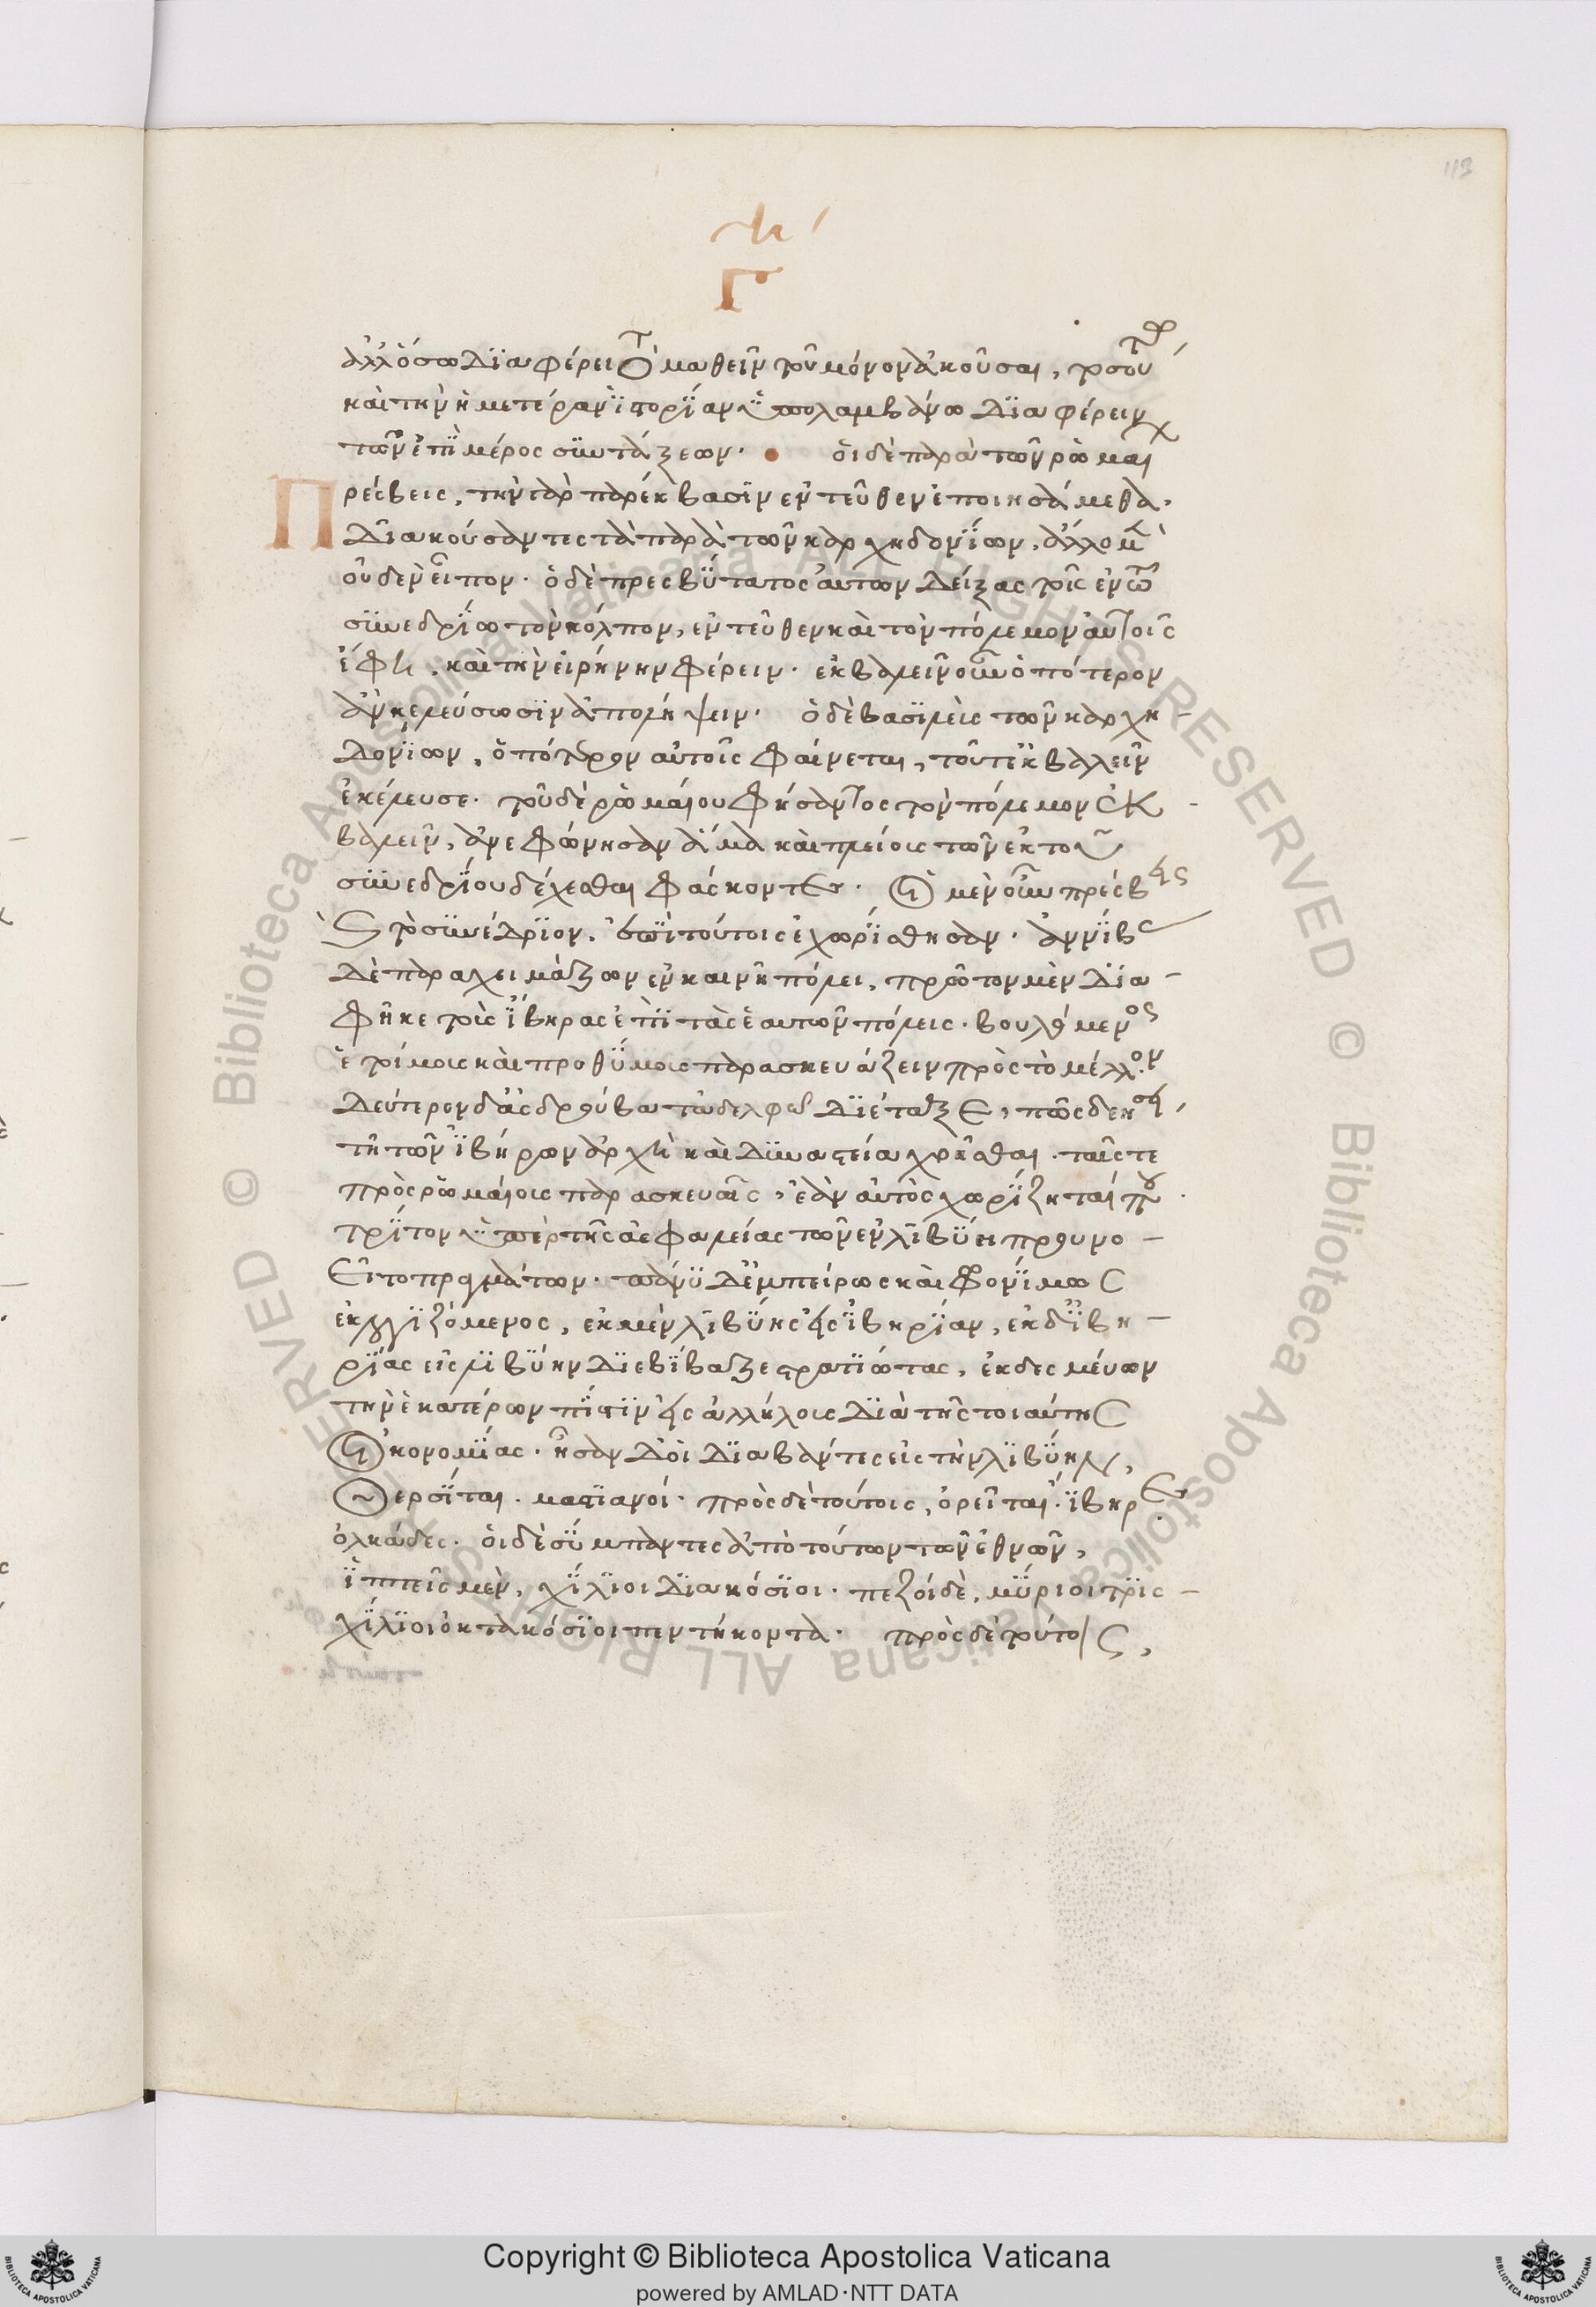 113
Γ
ἀλλ' ὅσω διαφέρει τὸ μαθεῖν τοῦ μόνον ἀκοῦσαι, τοσούτω
καὶ τὴν ἡμετέραν ἱστορίαν ὑπολαμβάνω διαφέρειν
τῶν ἐπὶ μέρος συντάξεων. οἱ δὲ παρὰ τῶν ῥωμαί
Πρέσβεις, τὴν γὰρ παρέκβασιν ἐντεῦθεν ἐποιησάμεθα.
διακούσαντες τὰ παρὰ τῶν καρχηδονίων, ἄλλο μὲν
οὐδὲν εἶπον. ὁ δὲ πρεσβύτατος αὐτῶν δείξας τοῖς ἐν τῶ
συνεδρίω τὸν κόλπον, ἐντεῦθεν καὶ τὸν πόλεμον αὐτοῖς
ἔφη, καὶ τὴν εἰρήνην φέρειν. ἐκβαλεῖν οὖν ὁπότερον
ἂν κελεύσωσιν ἀπολήψειν. ὁ δὲ βασιλεὺς τῶν καρχη-
δονίων, ὁπότερον αὐτοῖς φαίνεται, τοῦτ' ἐκβαλεῖν
ἐκέλευσε. τοῦ δὲ ῥωμαίου φήσαντος τὸν πόλεμον ἐκ-
βαλεῖν, ἀνεφώνησαν ἅμα καὶ πλείους τῶν ἐκ τοῦ
συνεδρίου δέχεσθαι φάσκοντες. οἱ μὲν οὖν πρέσβεις
καὶ τὸ συνέδριον, ἐπὶ τούτοις ἐχωρίσθησαν. ἀννίβας
δὲ παραχειμάζων ἐν καινῆ πόλει, πρῶτον μὲν δια-
φῆκε τοὺς ἴβηρας ἐπὶ τὰς ἑαυτῶν πόλεις. βουλόμενος
ἑτοίμους καὶ προθύμους παρασκευάζειν πρὸς τὸ μέλλον
δεύτερον δ' ἀσδρούβα τἀδελφῶ διέταξε, πῶς δεήσει
τῆ τῶν ἰβήρων ἀρχῆ καὶ δυναστεία χρῆσθαι. ταῖς τε
πρὸς ῥωμαίους παρασκευαῖς, ἐὰν αὐτὸς χωρίζηταί που.
τρίτον ὑπὲρ τῆς ἀσφαλείας τῶν ἐν λιβύη προυνο-
εῖτο πραγμάτων. πάνυ δ' ἐμπείρως καὶ φρονίμως
ἐκλογιζόμενος, ἐκ μὲν λιβύης εἰς ἰβηρίαν, ἐκ δ' ἰβη-
ρίας εἰς λιβύην διεβίβαζε στρατιώτας, ἐκδεσμεύων
τὴν ἑκατέρων πίστιν εἰς ἀλλήλους διὰ τῆς τοιαύτης
οἰκονομίας. ἦσαν δ' οἱ διαβάντες εἰς τὴν λιβύην,
θερσῖται. μαστιανοί. πρὸς δὲ τούτοις, ὀρεῖται. ἴβηρες.
ὀλκάδες. οἱ δὲ σύμπαντες ἀπὸ τούτων τῶν ἐθνῶν,
ἱππεῖς μὲν, χίλιοι διακόσιοι. πεζοὶ δὲ, μύριοι τρισ-
χίλιοι ὀκτακόσιοι πεντήκοντα. πρὸς δὲ τούτοις,
Copyright © Biblioteca Apostolica Vaticana
powered by AMLAD·NTT DATA